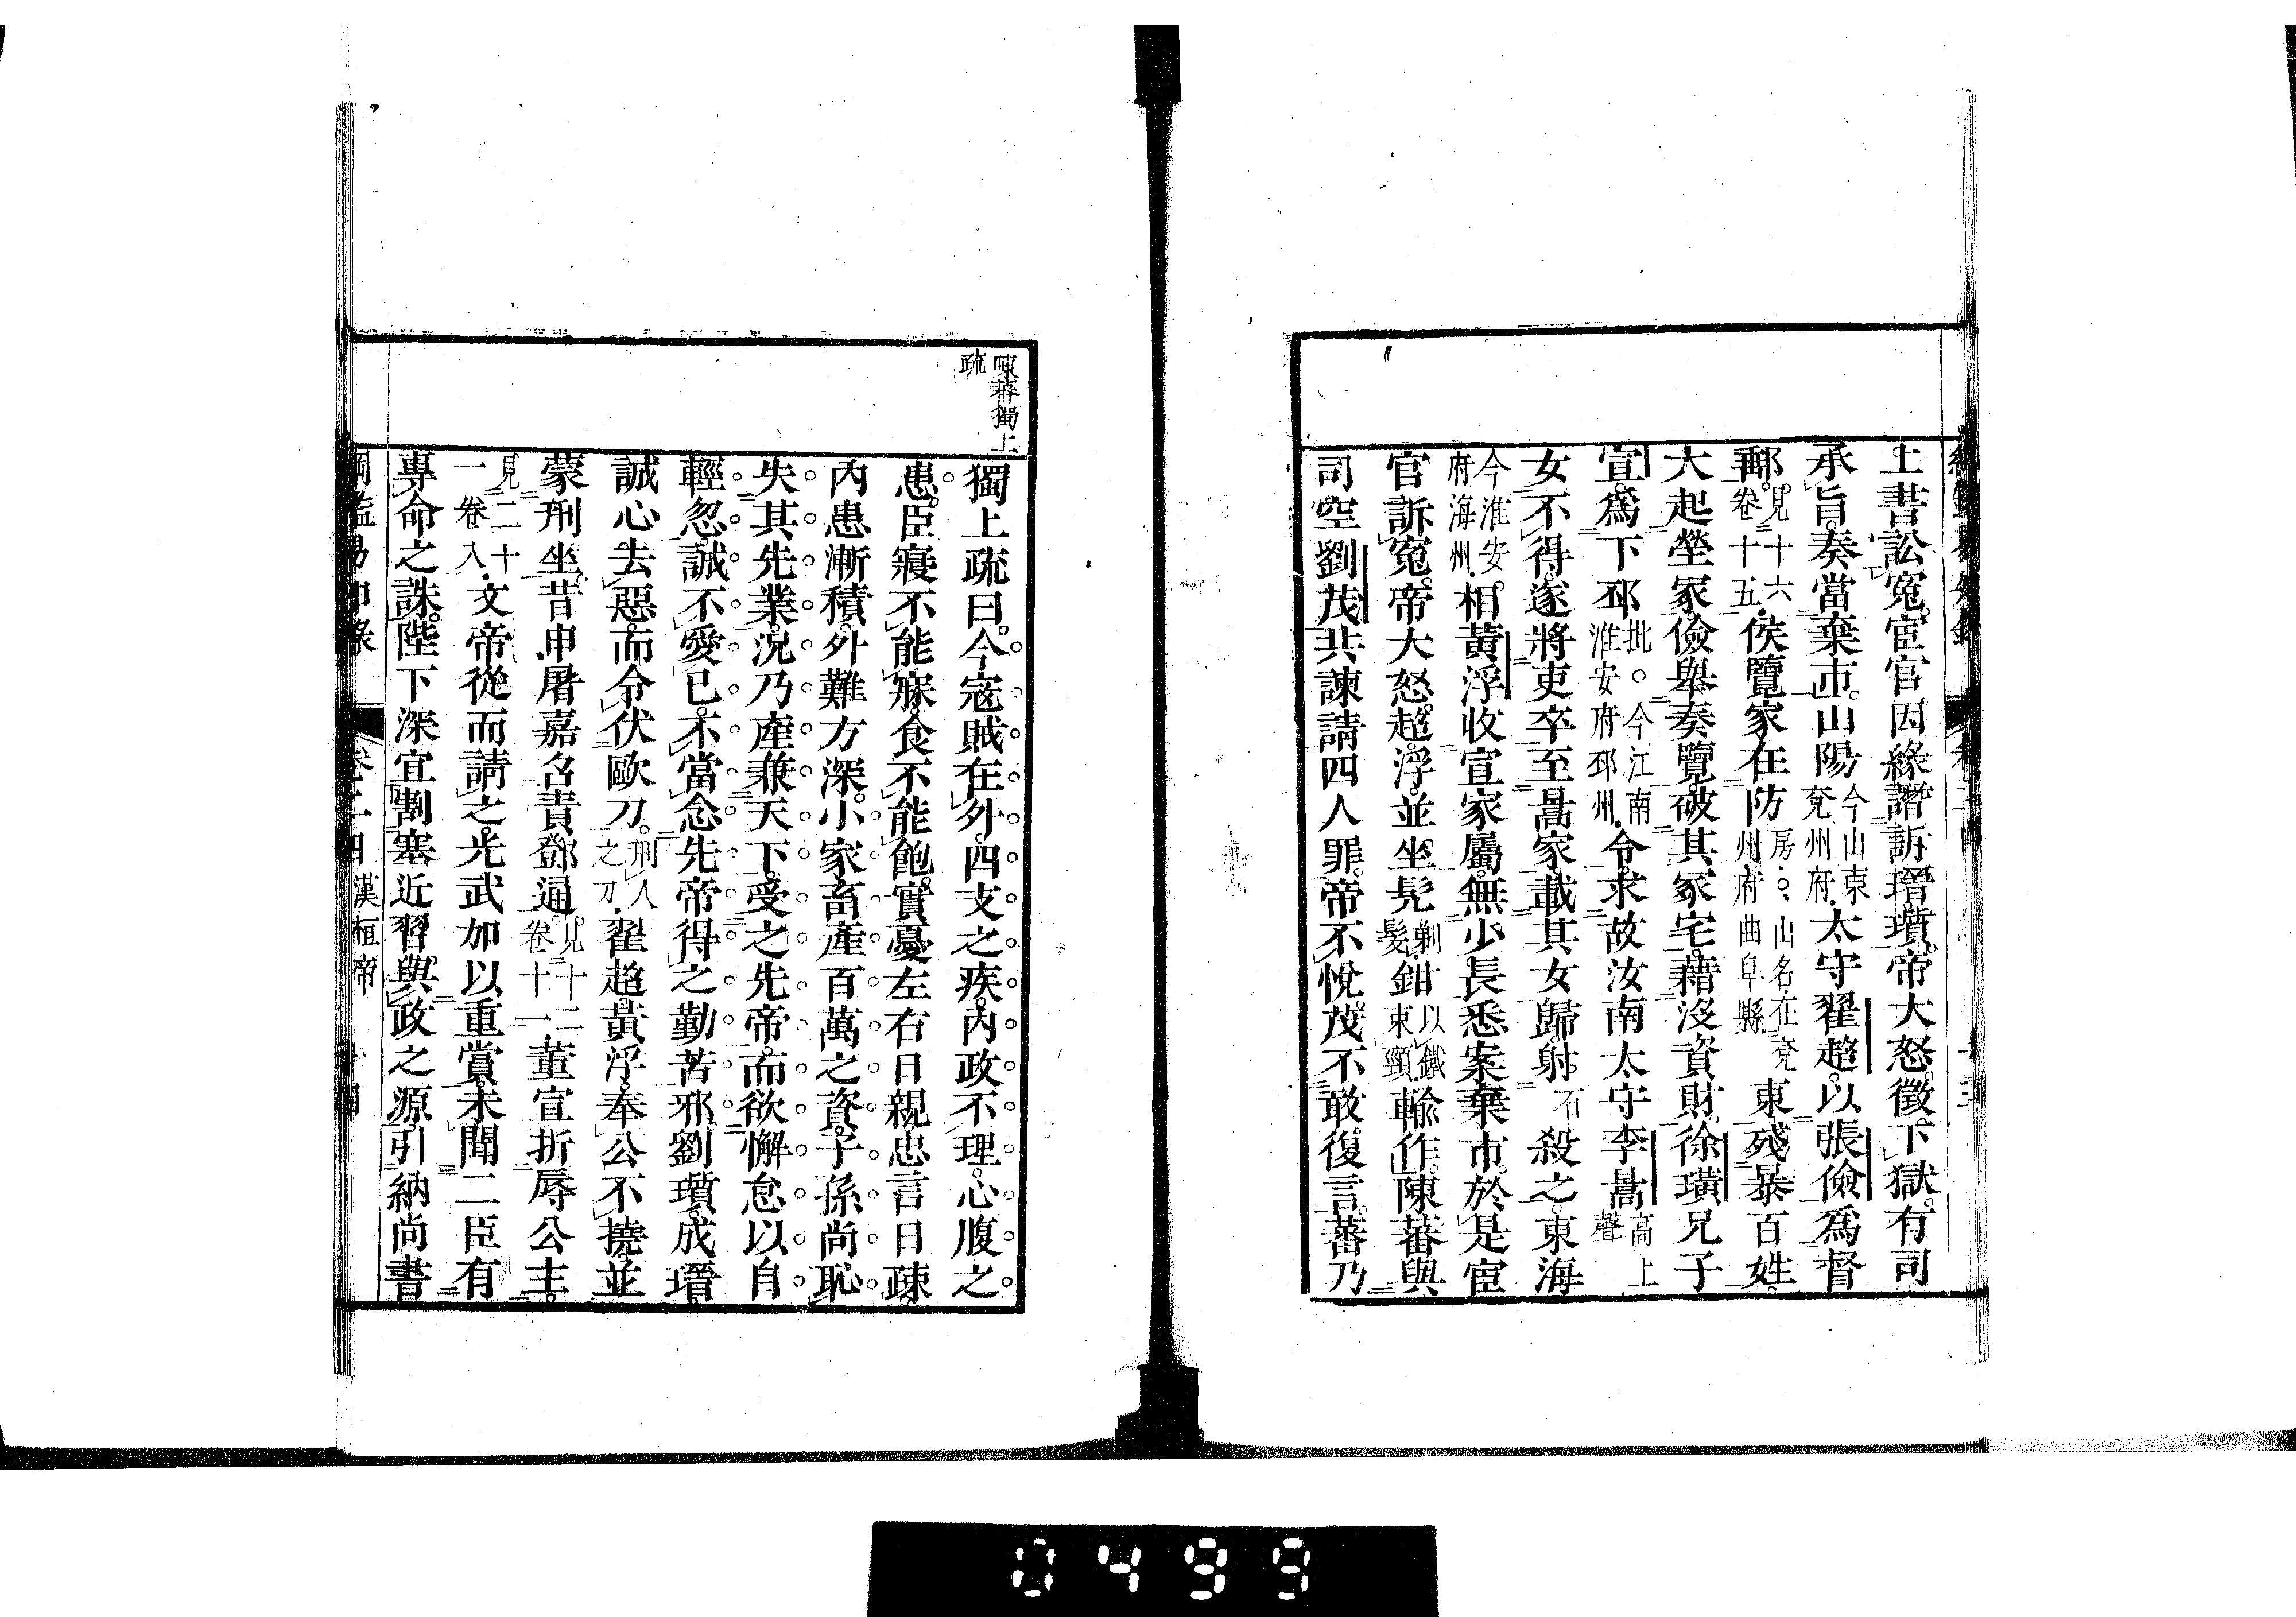 上書訟冤宦官因緣譖訴瑨瓆帝大怒徵下獄有司
承旨奏當棄市山陽今山東兗州府太守翟超以張儉爲督
郵見十六卷十五侯覽家在防房。山名在兗州府曲阜縣東殘暴百姓
大起塋冢儉舉奏覽破其冢宅藉沒資財徐璜兄子
宣爲下邳批。今江南淮安府邳州令求故汝南太守李暠高上聲
女不得遂將吏卒至暠家載其女歸射石殺之東海
今淮安府海州相黃浮收宣家屬無少長悉案棄市於是宦
官訴冤帝大怒超浮並坐髡剃髮鉗以鐵束頸輸作陳蕃與
司空劉茂共諫請四人罪帝不悅茂不敢復言蕃乃
陳蕃獨上疏
獨上疏曰今寇賊在外四支之疾內政不理心腹之
患臣寢不能寐食不能飽實憂左右日親忠言日疎
內患漸積外難方深小家畜產百萬之資子孫尚恥
失其先業況乃產兼天下受之先帝而欲懈怠以自
輕忽誠不愛已不當念先帝得之勤苦邪劉瓆成瑨
誠心去惡而令伏歐刀刑人之刀翟超黃浮奉公不撓並
蒙刑坐昔申屠嘉召責鄧通見十二卷十一董宣折辱公主
見二十一卷八文帝從而請之光武加以重賞未聞二臣有
專命之誅陛下深宜割塞近習與政之源引納尚書
卷二十四 漢桓帝
0499